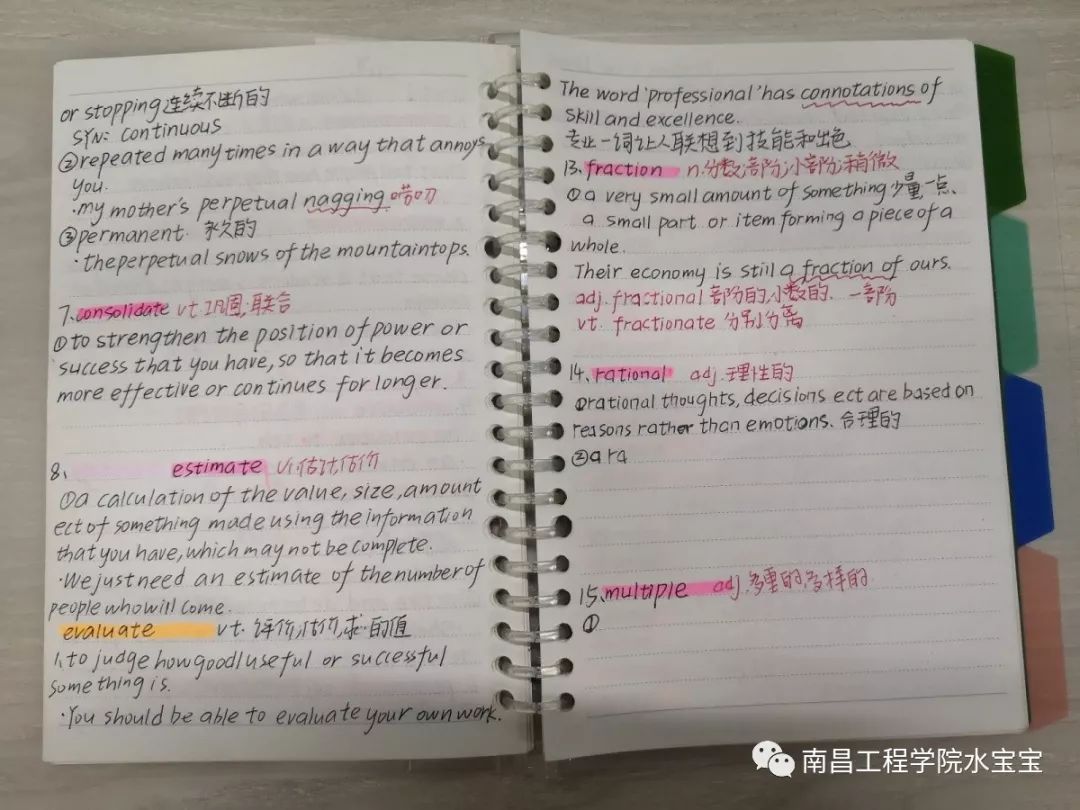 or stopping 连续不断的
SYN: continuous
②repeated many times in a way that annoys
you.
·my mother's perpetual nagging 唠叨
③permanent. 永久的
·the perpetual snows of the mountaintops.
7、consolidate vt.巩固;联合
①to strengthen the position of power or
success that you have, so that it becomes
more effective or continues for longer.
8、 estimate v.估计估价
①a calculation of the value, size, amount
ect of something made using the information
that you have, which may not be complete.
·We just need an estimate of the number of
people who will come.
evaluate vt. 评价,估价,求·的值
1、to judge how good useful or successful
something is.
·You should be able to evaluate your own work.
The word 'professional' has connotations of
skill and excellence.
专业一词让人联想到技能和出色
13、fraction n.分数;部份;小部份;稍微
①a very small amount of something 少量一点、
a small part or item forming a piece of a
whole.
Their economy is still a fraction of ours.
adj. fractional 部份的,小数的. 一部份
vt. fractionate 分别分离
14、rational adj.理性的
①rational thoughts, decisions ect are based on
reasons rather than emotions. 合理的
②a ra
15、multiple adj.多重的,多样的
①
南昌工程学院水宝宝